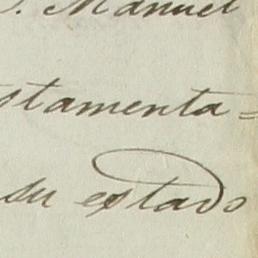 D. Manuel
stamenta=
su estado